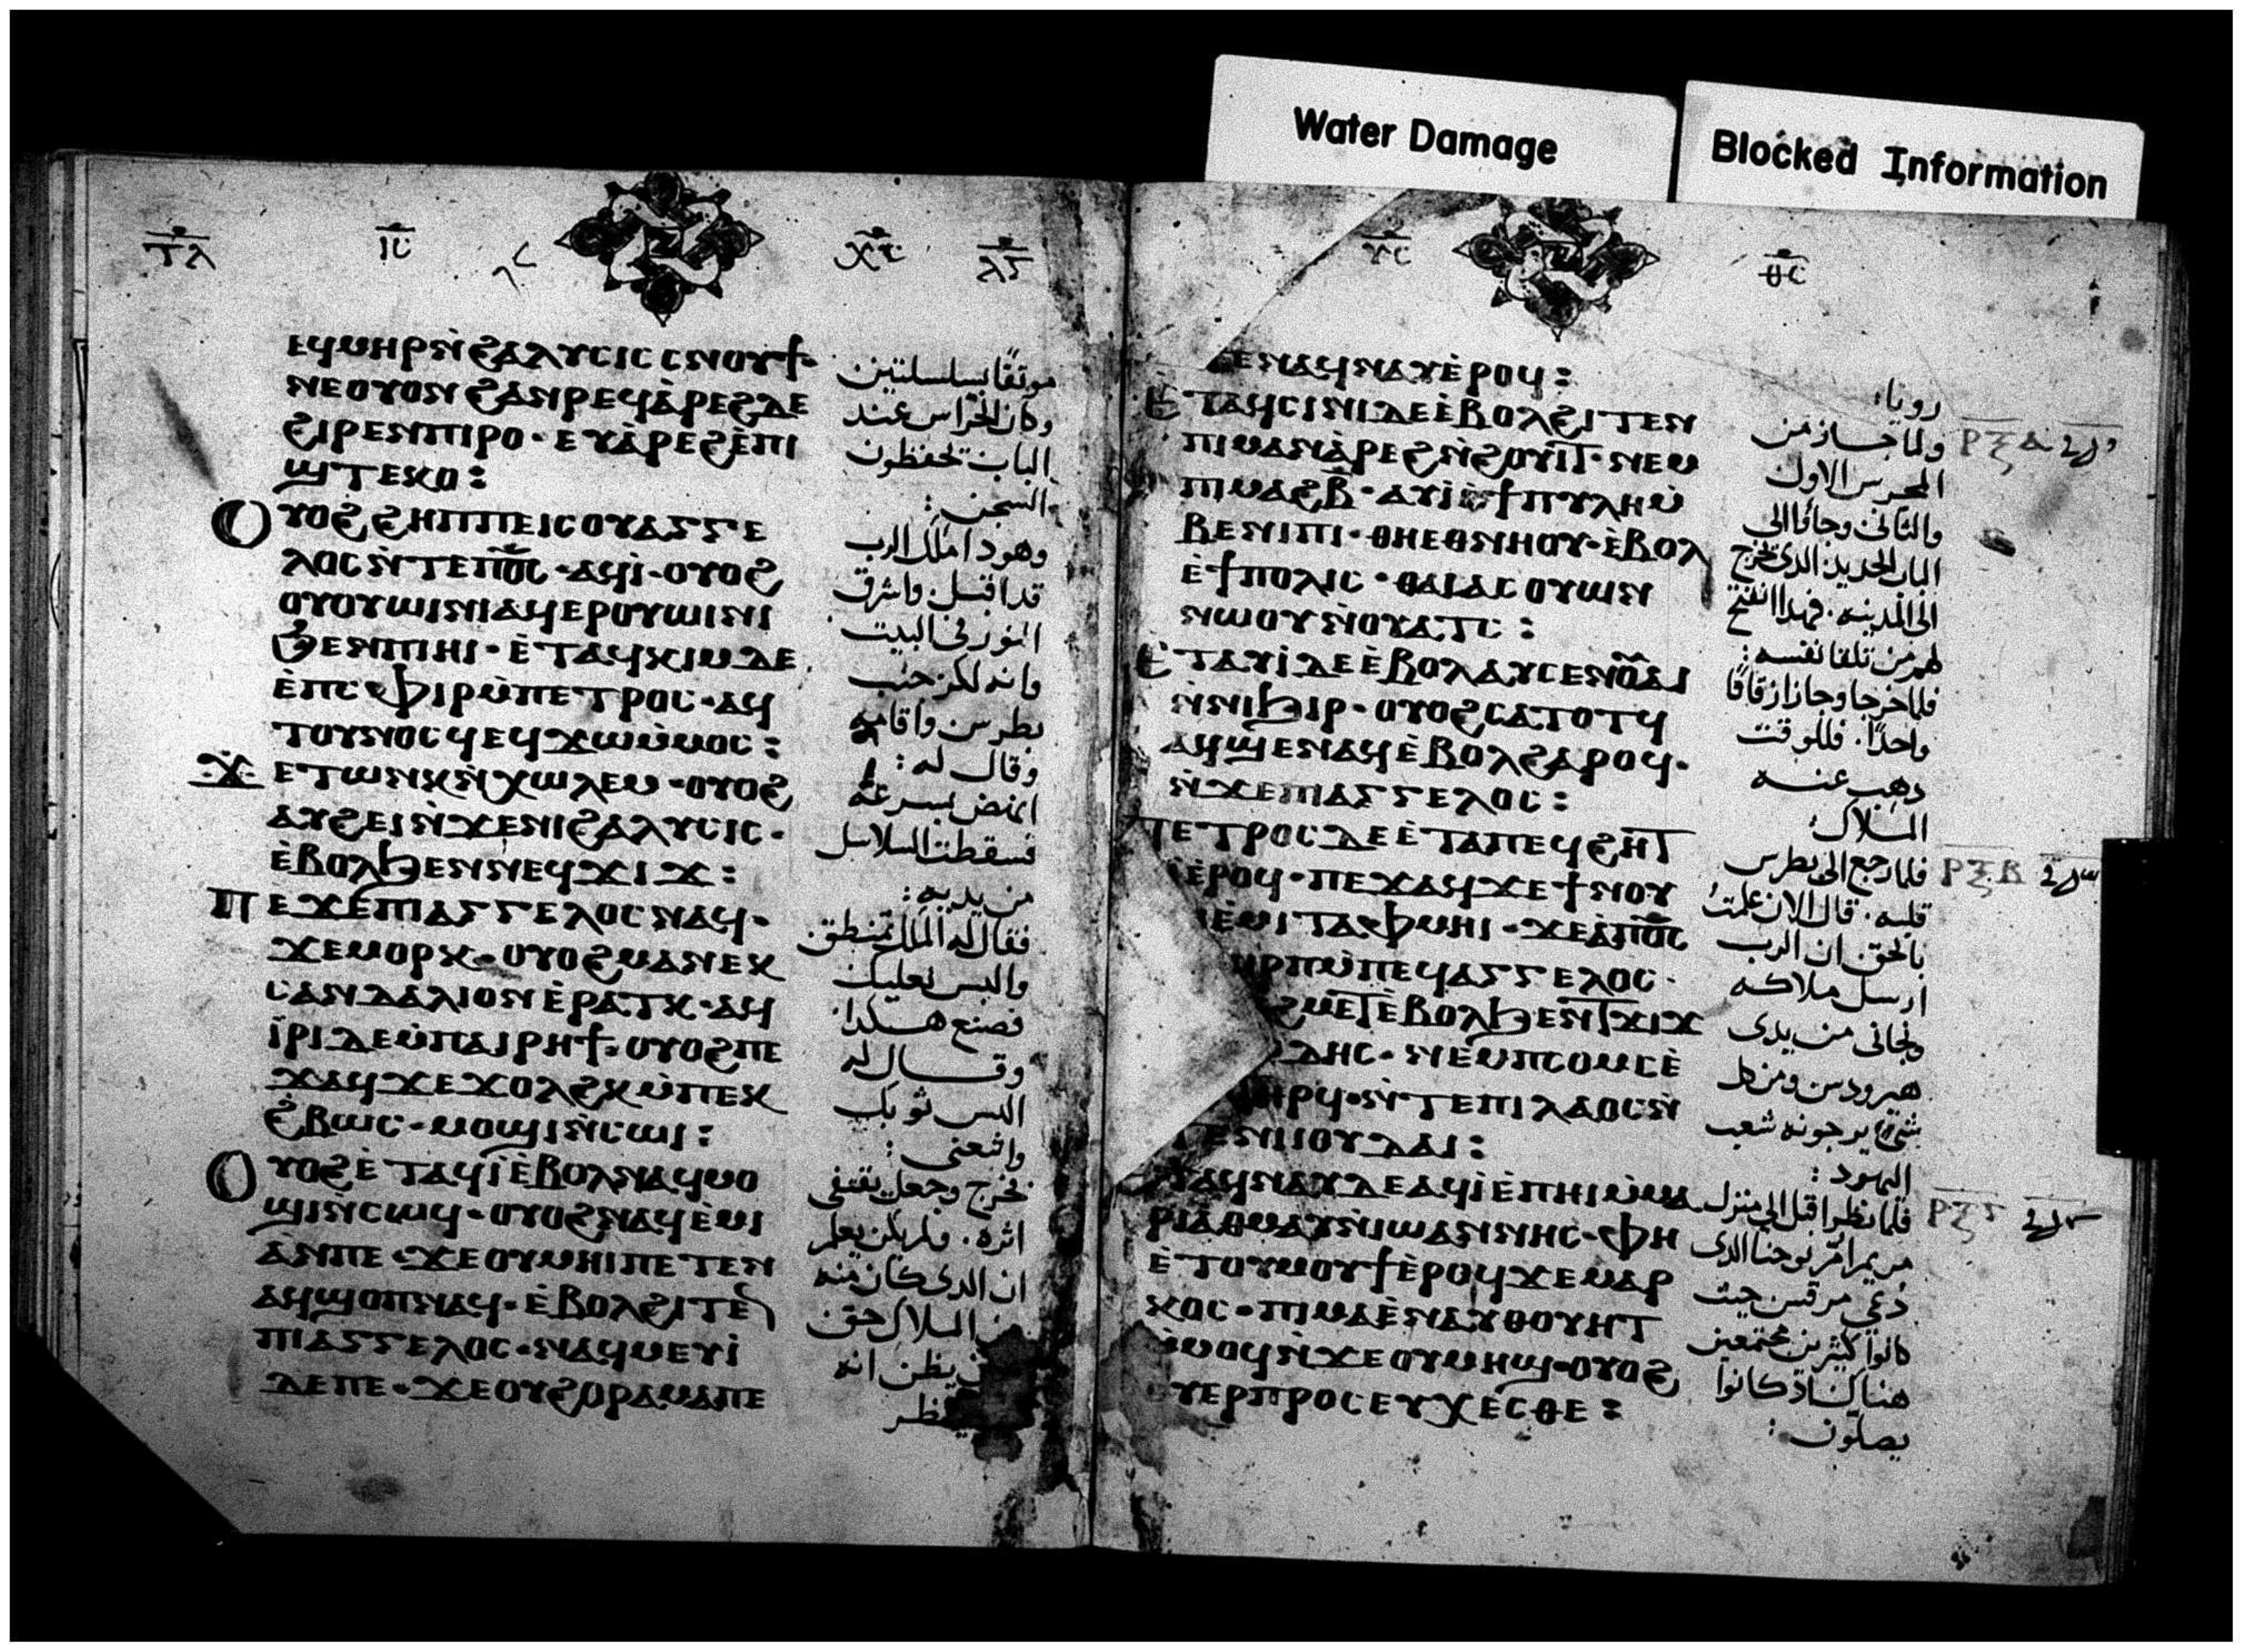 Water Damage
Blocked Information
ⲉϥⲙⲏⲣ ⲛ̀ϩⲁⲗⲩⲥⲓⲥ ⲥⲛⲟⲩϯ·
ⲛⲉ ⲟⲩⲟⲛ ϩⲁⲛⲣⲉϥⲁ̀ⲣⲉϩ ⲇⲉ
ϩⲓⲣⲉⲛ ⲡⲓⲣⲟ· ⲉⲩⲁ̀ⲣⲉϩ ⲉ̀ⲡⲓ
ϣⲧⲉⲕⲟ:
ⲟⲩⲟϩ ϩⲏⲡⲡⲉ ⲓⲥ ⲟⲩⲁⲅⲅⲉ
ⲗⲟⲥ ⲛ̀ⲧⲉ ⲡⲟ̅ⲥ̅· ⲁϥⲓ̀· ⲟⲩⲟϩ
ⲟⲩⲟⲩⲱⲓⲛⲓ ⲁϥⲉⲣⲟⲩⲱⲓⲛⲓ
ϧⲉⲛ ⲡⲓⲏⲓ· ⲉ̀ⲧⲁϥⲕⲓⲙ ⲇⲉ
ⲉ̀ⲡⲥⲫⲓⲣ ⲙ̀ⲡⲉⲧⲣⲟⲥ· ⲁϥ
ⲧⲟⲩⲛⲟⲥϥ ⲉϥϫⲱ ⲙ̀ⲙⲟⲥ:
ϫⲉ ⲧⲱⲛⲕ ⲛ̀ⲭⲱⲗⲉⲙ· ⲟⲩⲟϩ
ⲁⲩϩⲉⲓ ⲛ̀ϫⲉ ⲛⲓϩⲁⲗⲩⲥⲓⲥ·
ⲉ̀ⲃⲟⲗ ϧⲉⲛ ⲛⲉϥϫⲓϫ:
ⲡⲉϫⲉ ⲡⲓⲁⲅⲅⲉⲗⲟⲥ ⲛⲁϥ·
ϫⲉ ⲙⲟⲣⲕ· ⲟⲩⲟϩ ⲙⲁ ⲛⲉⲕ
ⲥⲁⲛⲇⲁⲗⲓⲟⲛ ⲉ̀ⲣⲁⲧⲕ· ⲁϥ
ⲓ̀ⲣⲓ ⲇⲉ ⲙ̀ⲡⲁⲓⲣⲏϯ· ⲟⲩⲟϩ ⲡⲉ
ϫⲁϥ ϫⲉ ϫⲟⲗϩⲕ ⲙ̀ⲡⲉⲕ
ϩ̀ⲃⲱⲥ· ⲙⲟϣⲓ ⲛ̀ⲥⲱⲓ:
ⲟⲩⲟϩ ⲉ̀ⲧⲁϥⲓ̀ ⲉ̀ⲃⲟⲗ ⲛⲁϥⲙⲟ
ϣⲓ ⲛ̀ⲥⲱϥ· ⲟⲩⲟϩ ⲛⲁϥⲉ̀ⲙⲓ
ⲁⲛ ⲡⲉ· ϫⲉ ⲟⲩⲙⲏⲓ ⲡⲉⲧⲉⲛ
ⲁϥϣⲟⲡ ⲛⲁϥ· ⲉ̀ⲃⲟⲗϩⲓⲧⲉⲛ
ⲡⲓⲁⲅⲅⲉⲗⲟⲥ· ⲛⲁϥⲙⲉⲩⲓ̀
ⲇⲉ ⲡⲉ· ϫⲉ ⲟⲩϩⲟⲣⲁⲙⲁ ⲡⲉ
موثقًا بسلسلتين
وكان الحراس عند
الباب يحفظون
السجن:
وهودا ملاك الرب
قد اقبل. واشرق
النور في البيت
وانه لكز جنب
بطرس واقامه
وقال له:
انهض بسرعة
فسقطت السلاسل
من يديه:
فقال له الملاك تمنطق.
والبس نعليك
فصنع هكذا
وقال له
البس ثوبك
واتبعني:
فخرج وجعل يقتفي
اثره. ولم يكن يعلم
ان الدي كان منه
الملاك حق
يظن انه
ⲉⲛⲁϥⲛⲁⲩ ⲉ̀ⲣⲟϥ:
ⲉ̀ⲧⲁϥⲥⲓⲛⲓ ⲇⲉ ⲉ̀ⲃⲟⲗϩⲓⲧⲉⲛ
ⲡⲓⲙⲁⲛⲁ̀ⲣⲉϩ ⲛ̀ϩⲟⲩⲓⲧ· ⲛⲉⲙ
ⲡⲓⲙⲁϩⲃ̅· ⲁⲩⲓ̀ ⲉ̀ϯⲡⲩⲗⲏ ⲙ̀
ⲃⲉⲛⲓⲡⲓ· ⲑⲏⲉⲑⲛⲏⲟⲩ· ⲉ̀ⲃⲟⲗ
ⲉ̀ϯⲡⲟⲗⲓⲥ· ⲑⲁⲓ ⲁⲥⲟⲩⲱⲛ
ⲛⲱⲟⲩ ⲛ̀ⲟⲩⲁⲧⲥ:
ⲉ̀ⲧⲁⲩⲓ̀ ⲇⲉ ⲉ̀ⲃⲟⲗ ⲁⲩⲥⲉⲛ ⲟⲩⲁⲓ
ⲛ̀ⲛⲓϧⲓⲣ· ⲟⲩⲟϩ ⲥⲁⲧⲟⲧϥ
ⲁϥϣⲉⲛⲁϥ ⲉ̀ⲃⲟⲗϩⲁⲣⲟϥ·
ⲛ̀ϫⲉ ⲡⲓⲁⲅⲅⲉⲗⲟⲥ:
ⲡⲉⲧⲣⲟⲥ ⲇⲉ ⲉ̀ⲧⲁ ⲡⲉϥϩⲏⲧ
ⲉ̀ⲣⲟϥ· ⲡⲉϫⲁϥ ϫⲉ ϯⲛⲟⲩ
ⲉ̀ⲙⲓ ⲧⲁⲫⲙⲏⲓ· ϫⲉ ⲁ̀ ⲡⲟ̅ⲥ̅
ⲙ̀ⲡⲉϥⲁⲅⲅⲉⲗⲟⲥ·
ϩⲙⲉⲧ ⲉ̀ⲃⲟⲗ ϧⲉⲛ ⲧϫⲓϫ
ⲇⲏⲥ· ⲛⲉⲙ ⲡⲥⲟⲙⲥ ⲉ̀
ⲏⲣϥ· ⲛ̀ⲧⲉ ⲡⲓⲗⲁⲟⲥ ⲛ̀
ⲧⲉ ⲛⲓⲓⲟⲩⲇⲁⲓ:
ⲧⲁϥⲛⲁⲩ ⲇⲉ ⲁϥⲓ̀ ⲉ̀ⲡⲏⲓ ⲙ̀ⲙⲁ
ⲣⲓⲁ ⲑⲙⲁⲩ ⲛ̀ⲓⲱⲁⲛⲛⲏⲥ· ⲫⲏ
ⲉ̀ⲧⲟⲩⲙⲟⲩϯ ⲉ̀ⲣⲟϥ ϫⲉ ⲙⲁⲣ
ⲕⲟⲥ· ⲡⲓⲙⲁ ⲉ̀ⲛⲁⲩⲑⲟⲩⲏⲧ
ⲙ̀ⲙⲟϥ ⲛ̀ϫⲉ ⲟⲩⲙⲏϣ· ⲟⲩⲟϩ
ⲩⲉⲣⲡⲣⲟⲥⲉⲩⲭⲉⲥⲑⲉ:
رويا:
ولما جاز من
المحرس الاول
والثاني وجاءا الى
الباب الحديد الذي يخرج
الى المدينه. فهدا انفتح
لهم من تلقا نفسه:
فلما خرجا وجازا زقاقًا
واحدًا. فللوقت
دهب عنه
الملاك:
فلما رجع الى بطرس
قلبه. قال الان علمت
بالحق ان الرب
ارسل ملاكه
ونجاني من يدي
هيرودس ومن كل
شي يرجونه شعب
اليهود:
فلما نظر اقبل الى منزل
مريم ام يوحنا الدي
دُعي مرقس حيث
كانوا كثيرين مجتمعين
هناك اذ كانوا
يصلّون: